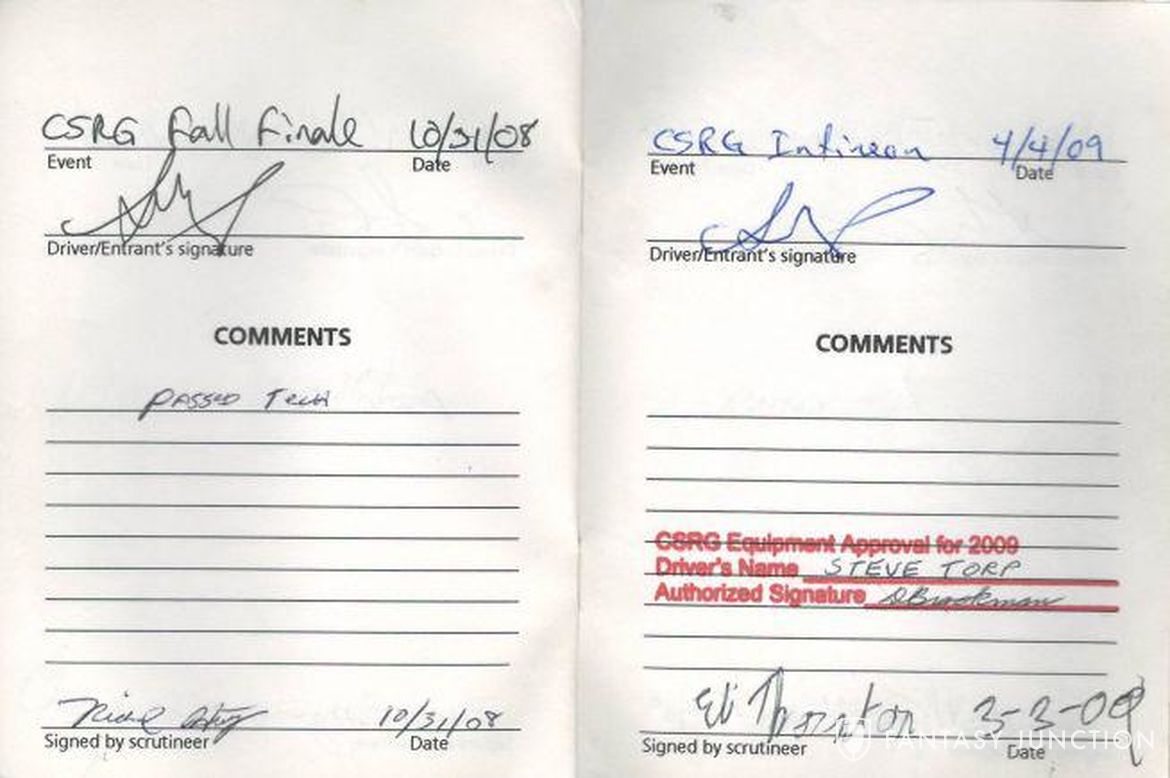 CSRG Fall Finale 10/31/08
Event Date
Driver/Entrant's signature
COMMENTS
PASSED TECH
10/31/08
Signed by scrutineer Date
CSRG Infineon 4/4/09
Event Date
Driver/Entrant's signature
COMMENTS
CSRG Equipment Approval for 2009
Driver's Name STEVE TORP
Authorized Signature DBrookman
Eli Thornton 3-3-09
Signed by scrutineer Date
FANTASY JUNCTION